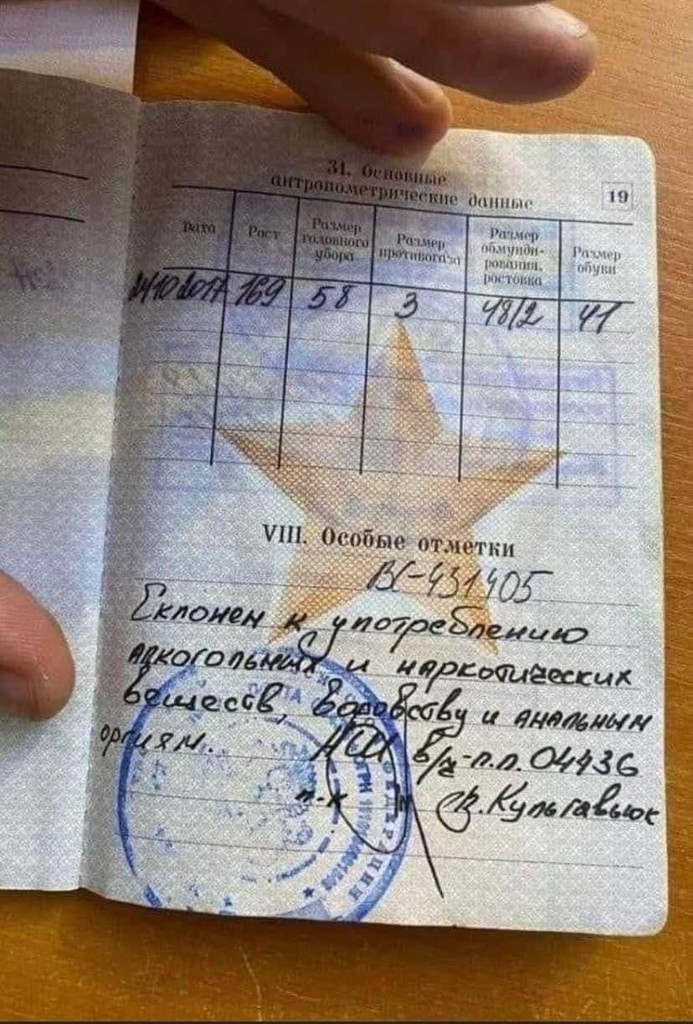 31. Основные
антропометрические данные
19
Дата Рост Размер головного убора Размер противогаза Размер обмунди-рования, ростовка Размер обуви
24102017 169 58 3 48/2 41
VIII. Особые отметки
ВС-431405
Склонен к употреблению
алкогольных и наркотических
веществ, воровству и анальным
оргиям. НШ в/ч-п.п. 04436
п-к